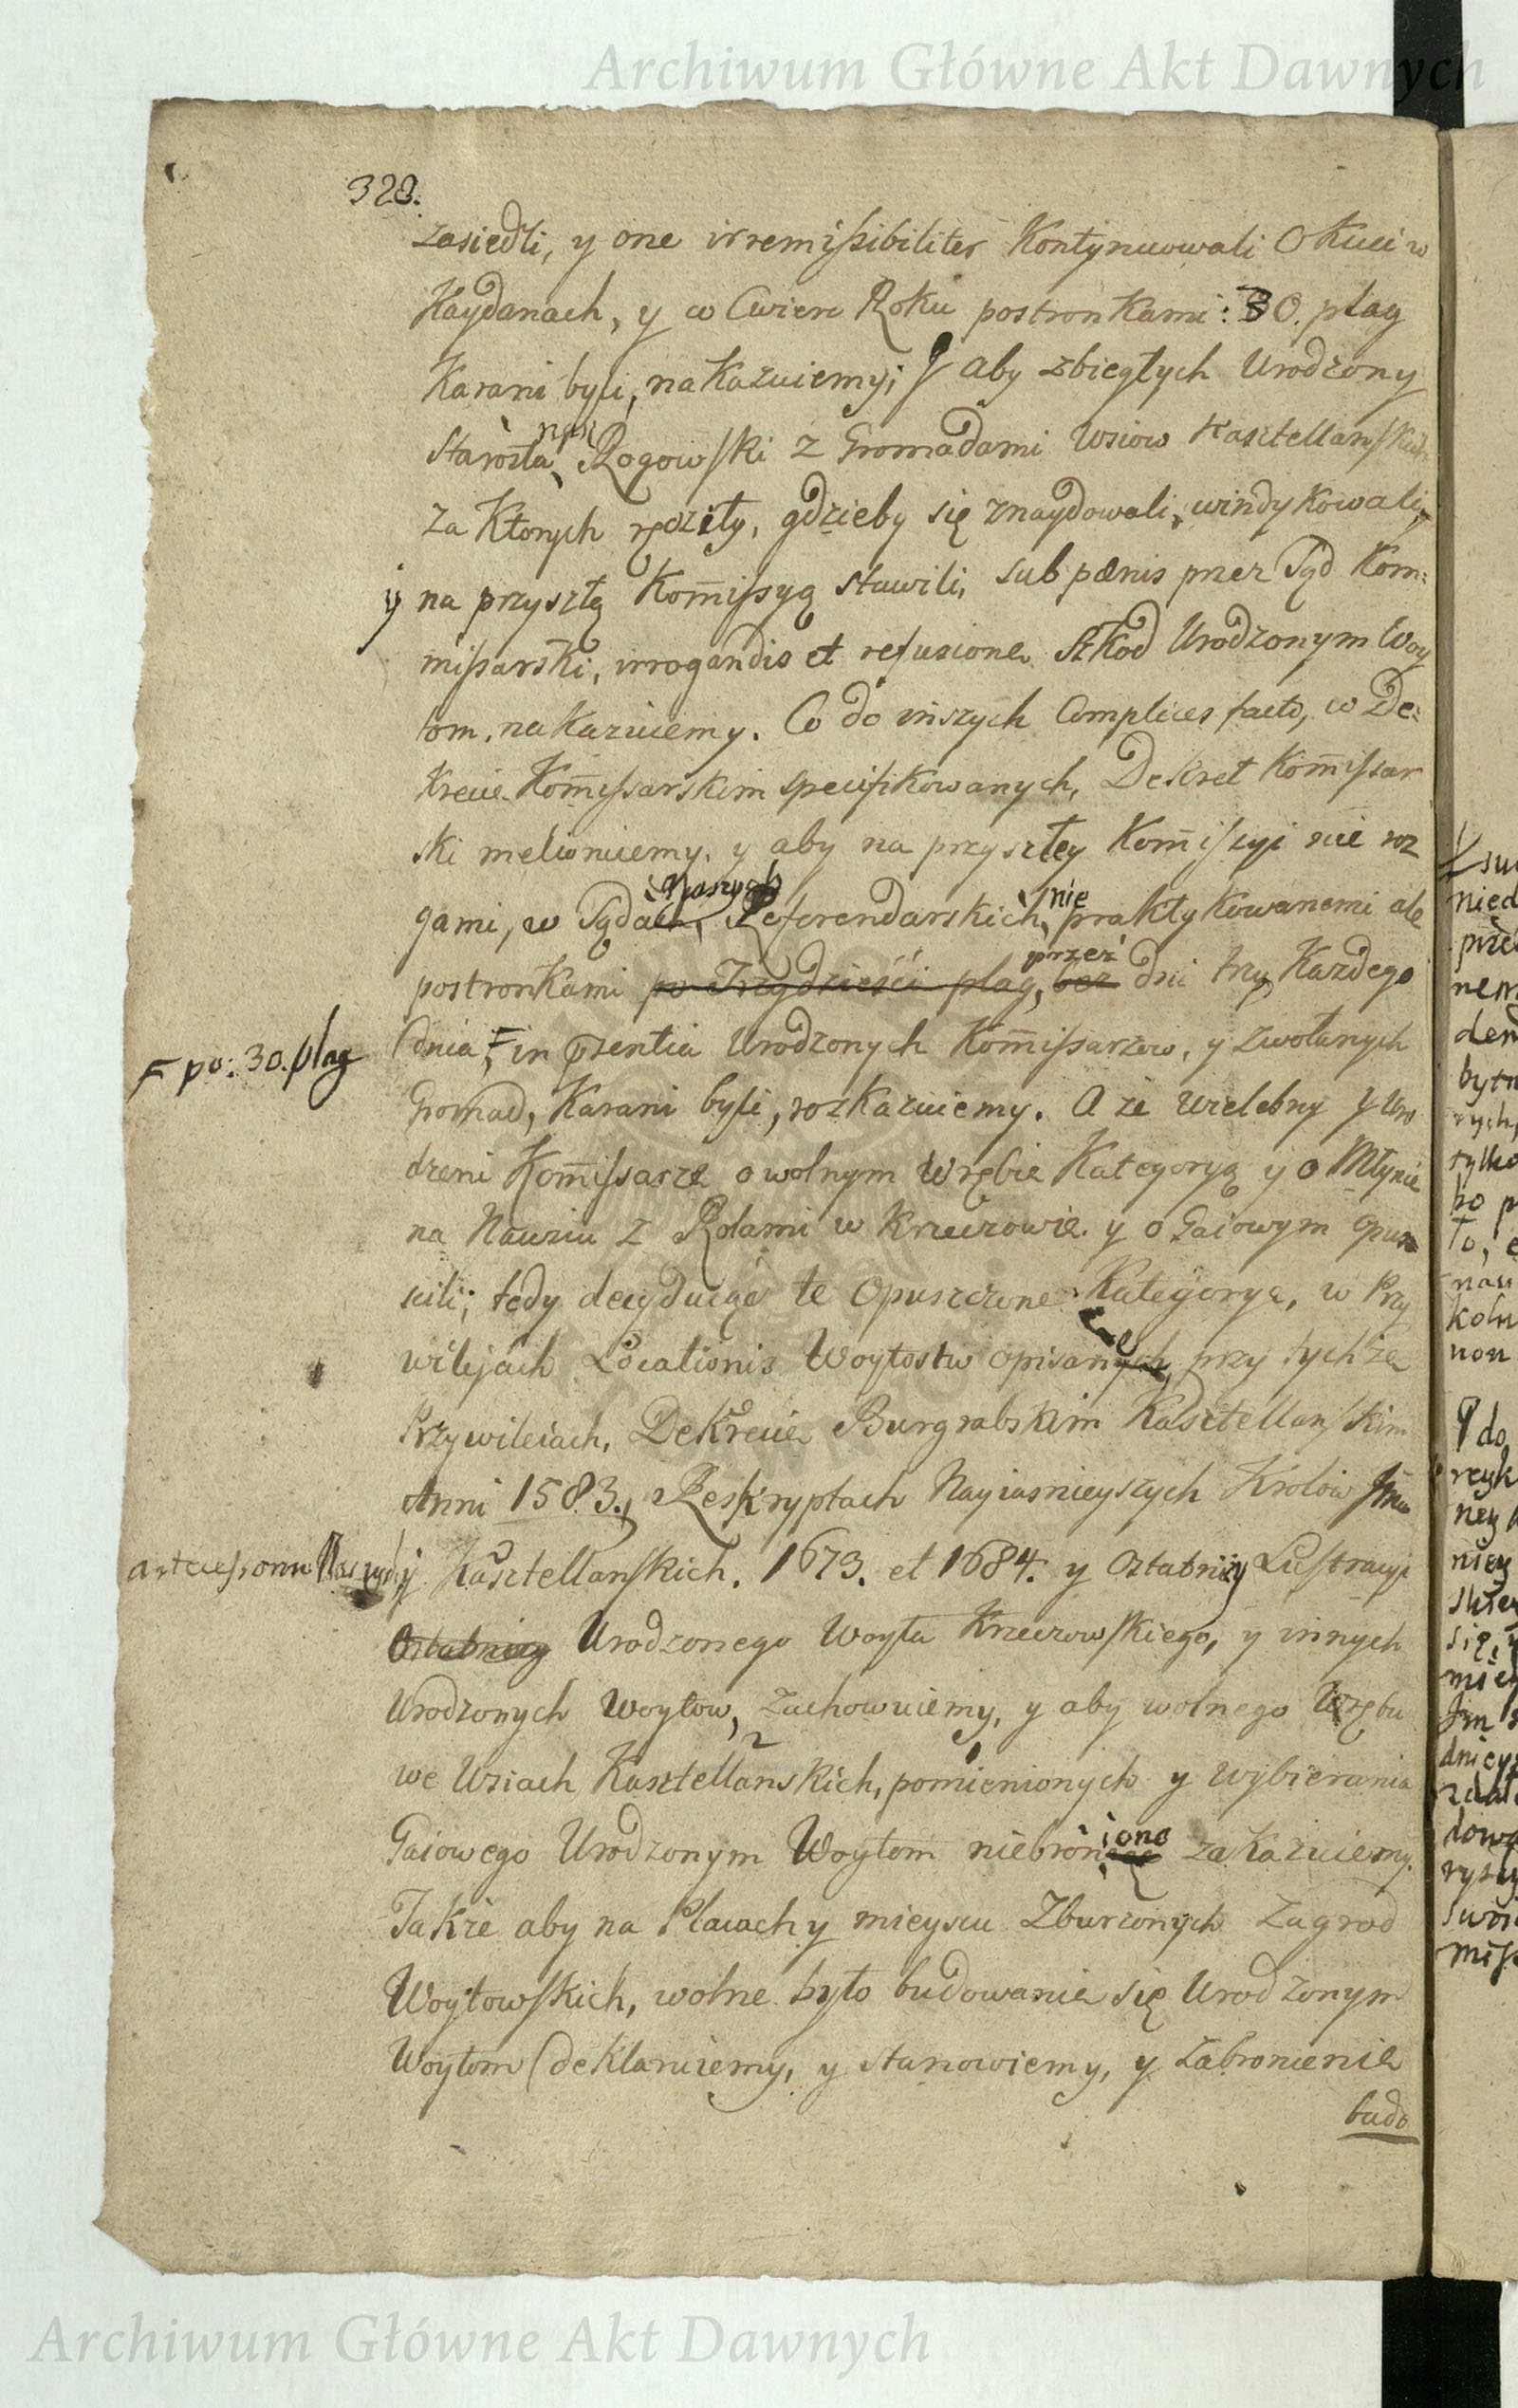 Archiwum Główne Akt Dawnych
328.
zasiedli, y one irremissibiliter Kontynuowali Okuci w
Kaydanach, y w Cwierc Roku postronkami: 30. plag
Karani byli, nakazuiemy; y aby zbiegłych Urodzony
Starosta Rogowski z Gromadami Wsiow Kasztellanskich
za Ktorych ręczyły, gdzieby się znaydowali, windykowali,
y na przyszłą Kom̄issyą stawili, sub pœnis przez Sąd Kom:
missarski, irrogandis et refusione Szkod Urodzonym Woy
tom, nakazuiemy. Co do inszych Complices facti, w De:
krecie Kom̄issarskim specifikowanych, Dekret Kom̄issar
ski meliuruiemy, y aby na przyszłey Kom̄issyi nie roz
gami, w Sądach, Naszych Referendarskich, nie praktykowanemi ale
postronkami po Trzydzieści plag, bez przez dni trzy, Kazdego
dnia, in prsentia Urodzonych Kom̄issarzow, y zwołanych
F po: 30. plag
Gromad, Karani byli, rozkazuiemy. A ze Wielebny y Uro
dzeni Kom̄issarze o wolnym Wrębie Kategoryą y o Młynie
na Nawsiu z Rolami w Krzeczowie y o Gaiowym opus
cili; tedy decyduiąc te Opuszczone Kategorye, w Przy
wilejach Locationis Woytostw opisanych, przy tychże
Przywileiach, Dekrecie Burgrabskim Kasztellanskim
Anni 1583., Reskryptach Nayiasnieyszych Krolow
antecessorow Naszych, y Kasztellanskich. 1673. et 1684. y Ostatniey Lustracyi
Ostatniey Urodzonego Woyta Krzeczowskiego, y innych
Urodzonych Woytow, zachowuiemy, y aby wolnego Wrębu
we Wsiach Kasztellanskich, pomienionych y wybierania
Gaiowego Urodzonym Woytom niebroniono zakazuiemy.
Także aby na Placach y mieyscu Zburzonych Zagrod
Woytowskich, wolne było budowanie się Urodzonym
Woytom deklaruiemy, y stanowiemy, y zabronienie
budo
Archiwum Główne Akt Dawnych